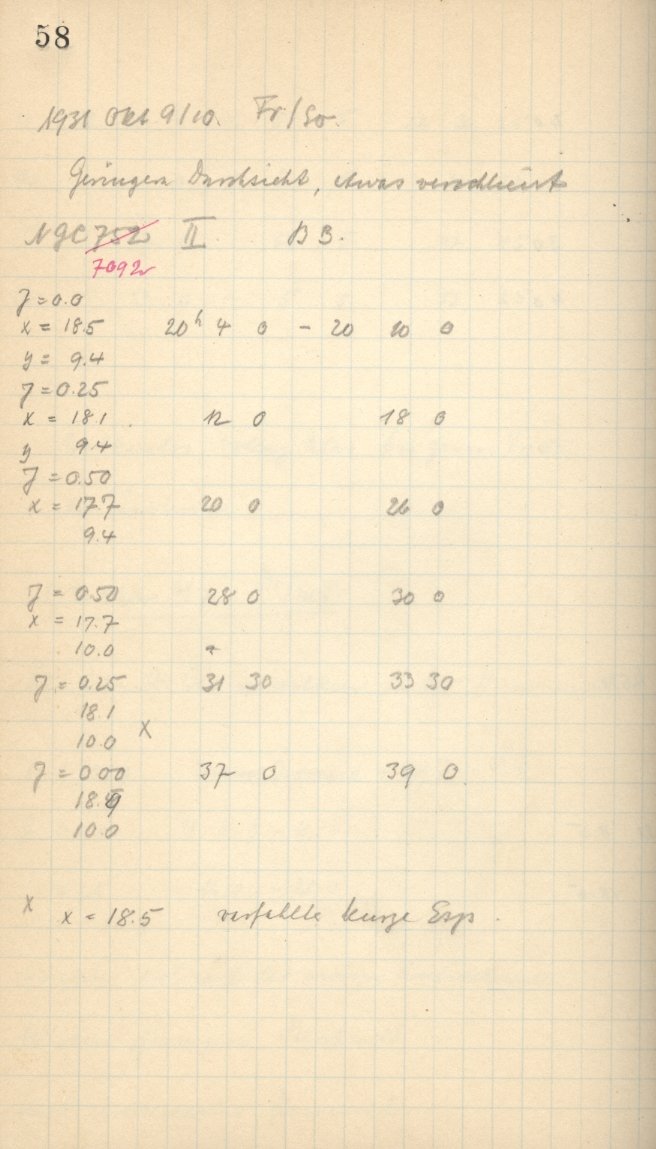 58
1931 Okt 9/10. Fr/So.
Geringere Durchsicht, etwas verschleiert
NGC 752 II B B.
7092
J = 0.0
x = 18.5 20h 4 0 - 20 10 0
y = 9.4
J = 0.25
x = 18.1 12 0 18 0
y 9.4
J = 0.50
x = 17.7 20 0 26 0
9.4
J = 0.50 28 0 30 0
x = 17.7
10.0
J = 0.25 31 30 33 30
18.1
10.0 x
J = 0.00 37 0 39 0
10.0
x x = 18.5 kurze Exp.